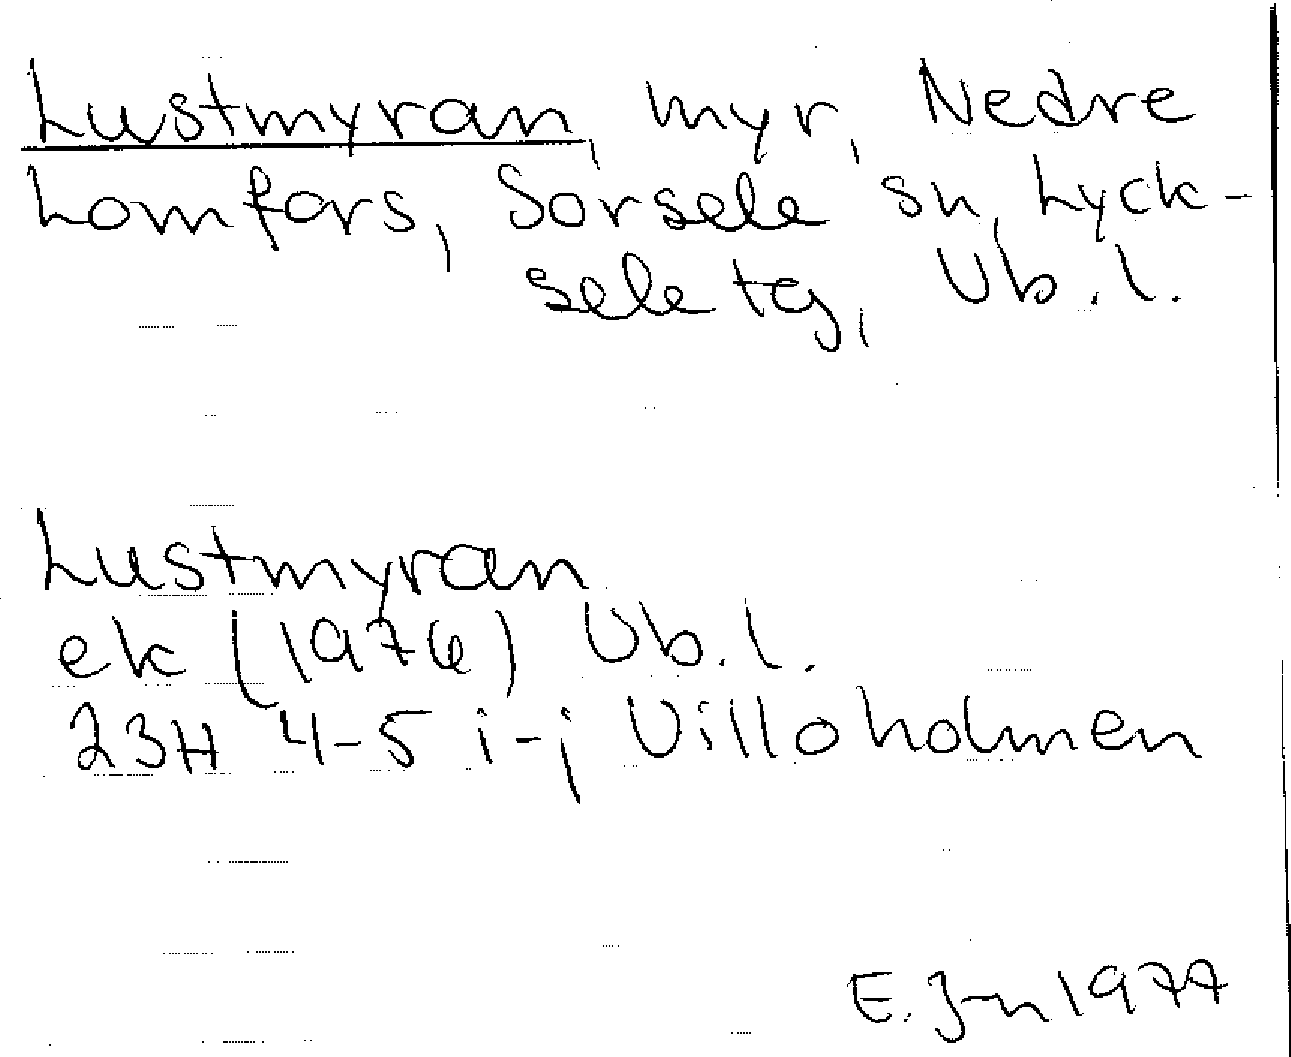 Lustmyran, myr, Nedre
Lomfors, Sorsele sn, Lyck-
sele tg, Vb.l.
Lustmyran
ek (1976) Vb.l.
23H 4-5 i-j Villoholmen
E. J-n 1977